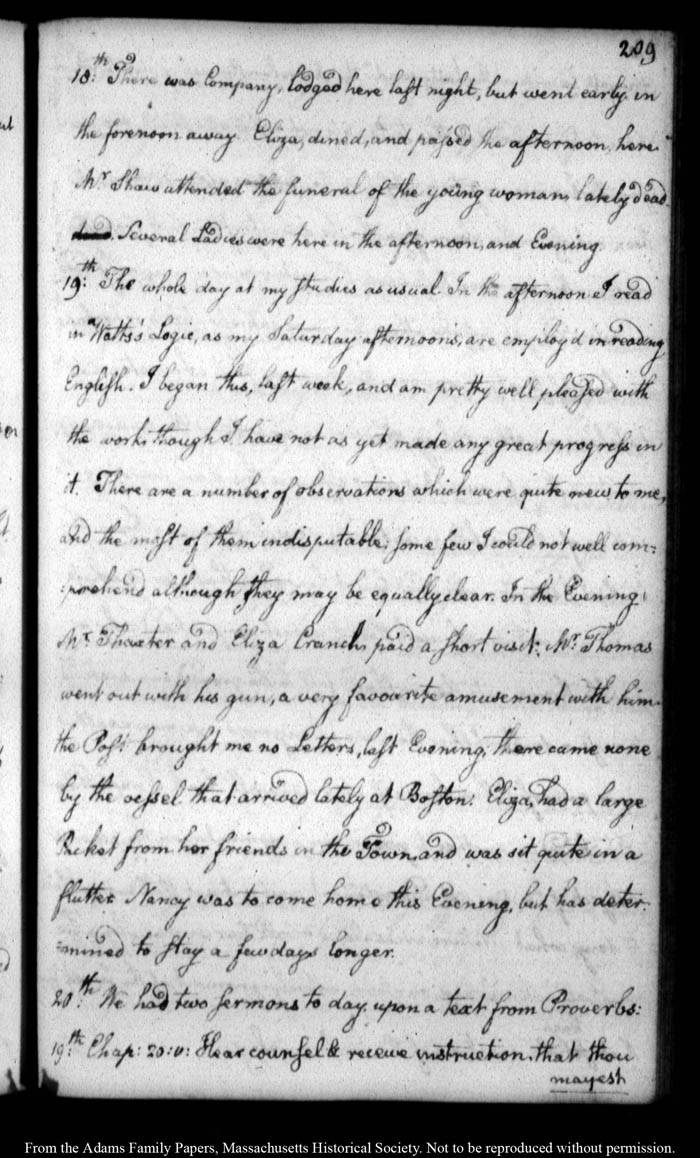 209
18th: There was Company, lodged here last night, but went early in
the forenoon away. Eliza, dined, and passed the afternoon, here.
Mr Shaw attended the funeral of the young woman, lately dead
dead. Several Ladies were here in the afternoon, and Evening.
19th: The whole day at my studies as usual. In the afternoon I read
in Watts's Logic, as my Saturday afternoon's, are employ'd in reading
English. I began this, last week, and am pretty well pleased with
the work, though I have not as yet made any great progress in
it. There are a number of observations which were quite new to me,
and the most of them indisputable: some few I could not well com=
=prehend although they may be equally clear. In the Evening
Mr. Thaxter and Eliza Cranch, paid a short visit: Mr. Thomas
went out with his gun, a very favourite amusement with him.
the Post brought me no Letters, last Evening, there came none
by the vessel that arrived lately at Boston: Eliza, had a large
Packet from her friends in the Town, and was sit quite in a
flutter. Nancy was to come home this Evening, but has deter=
=mined to stay a few days longer.
20th: We had two sermons to day, upon a text from Proverbs:
19th: Chap: 20: v: Hear counsel & receive instruction, that thou
mayest
From the Adams Family Papers, Massachusetts Historical Society. Not to be reproduced without permission.